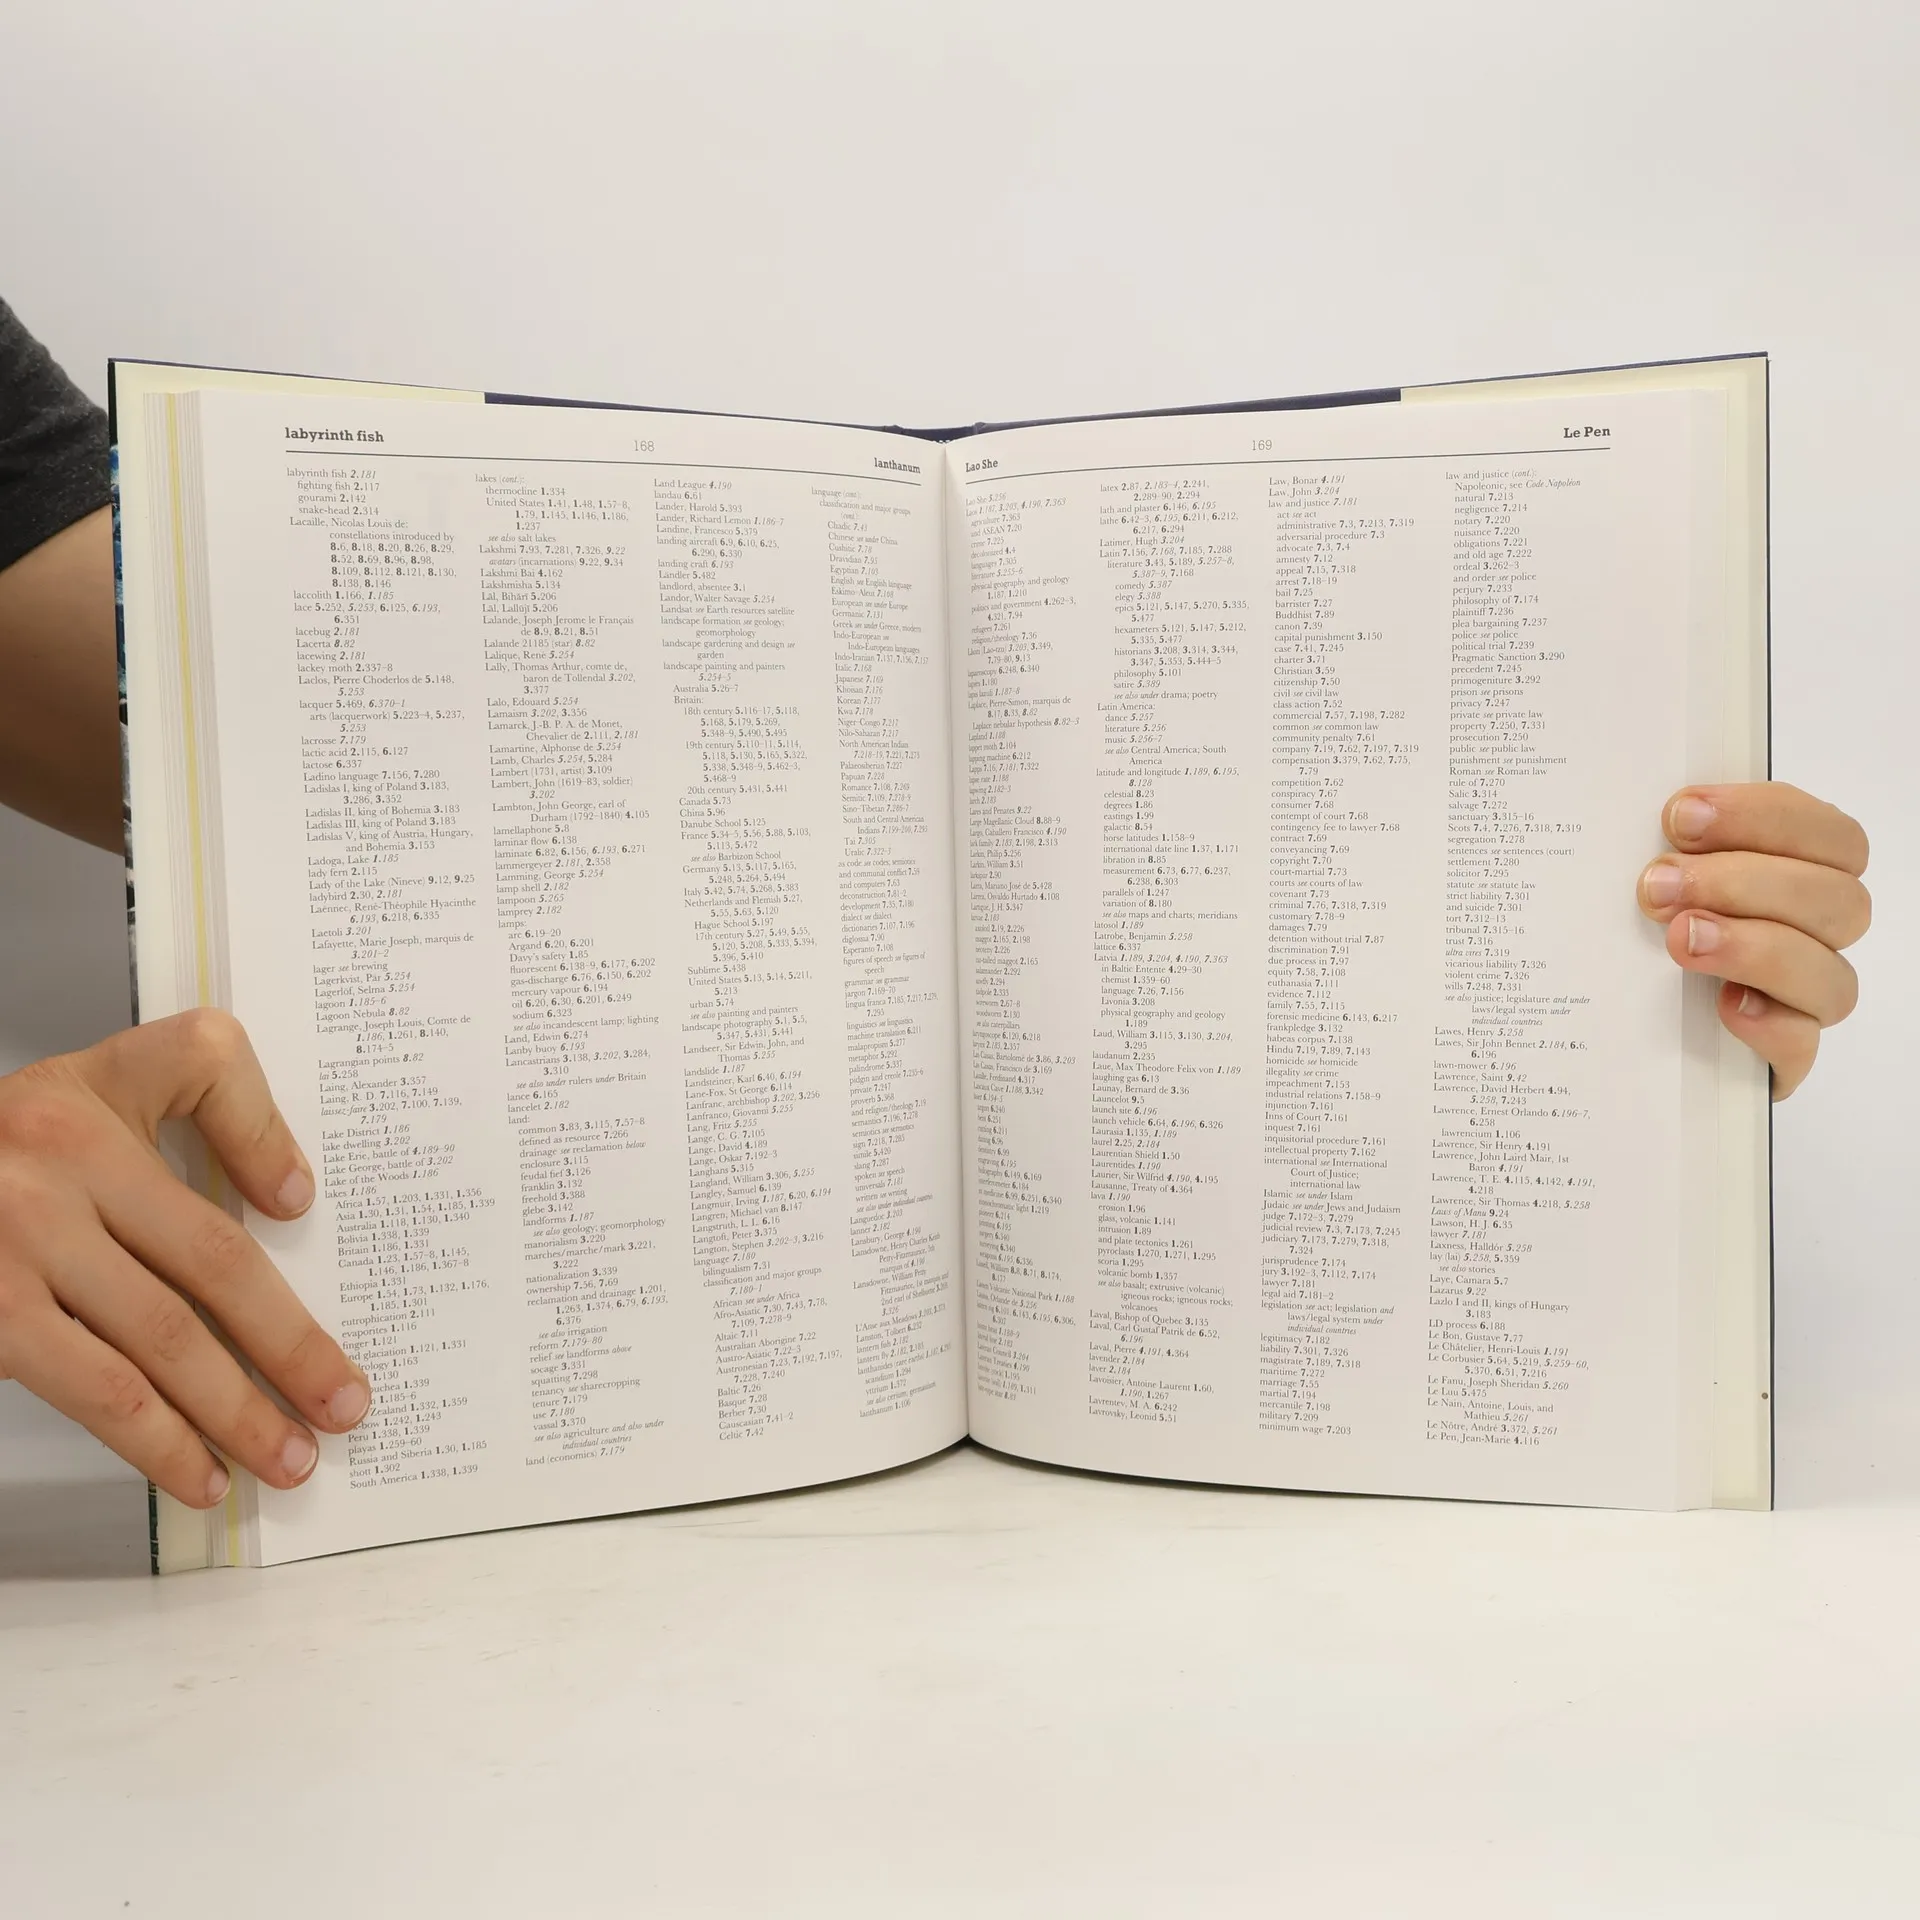 labyrinth fish
168
lanthanum
labyrinth fish 2.181
fighting fish 2.117
gourami 2.142
snake-head 2.314
Lacaille, Nicolas Louis de:
constellations introduced by
8.6, 8.18, 8.20, 8.26, 8.29,
8.52, 8.69, 8.96, 8.98,
8.109, 8.112, 8.121, 8.130,
8.138, 8.146
laccolith 1.166, 1.185
lace 5.252, 5.253, 6.125, 6.193,
6.351
lacebug 2.181
Lacerta 8.82
lacewing 2.181
lackey moth 2.337-8
Laclos, Pierre Choderlos de 5.148,
5.253
lacquer 5.469, 6.370-1
arts (lacquerwork) 5.223-4, 5.237,
5.253
lacrosse 7.179
lactic acid 2.115, 6.127
lactose 6.337
Ladino language 7.156, 7.280
Ladislas I, king of Poland 3.183,
3.286, 3.352
Ladislas II, king of Bohemia 3.183
Ladislas III, king of Poland 3.183
Ladislas V, king of Austria, Hungary,
and Bohemia 3.153
Ladoga, Lake 1.185
lady fern 2.115
Lady of the Lake (Nineve) 9.12, 9.25
ladybird 2.30, 2.181
Laënnec, René-Théophile Hyacinthe
6.193, 6.218, 6.335
Laetoli 3.201
Lafayette, Marie Joseph, marquis de
3.201-2
lager see brewing
Lagerkvist, Pär 5.254
Lagerlöf, Selma 5.254
lagoon 1.185-6
Lagoon Nebula 8.82
Lagrange, Joseph Louis, Comte de
1.186, 1.261, 8.140,
8.174-5
Lagrangian points 8.82
lai 5.258
Laing, Alexander 3.357
Laing, R. D. 7.116, 7.149
laissez-faire 3.202, 7.100, 7.139,
7.179
Lake District 1.186
lake dwelling 3.202
Lake Erie, battle of 4.189-90
Lake George, battle of 3.202
Lake of the Woods 1.186
lakes 1.186
Africa 1.57, 1.203, 1.331, 1.356
Asia 1.30, 1.31, 1.54, 1.185, 1.339
Australia 1.118, 1.130, 1.340
Bolivia 1.338, 1.339
Britain 1.186, 1.331
Canada 1.23, 1.57-8, 1.145,
1.146, 1.186, 1.367-8
Ethiopia 1.331
Europe 1.54, 1.73, 1.132, 1.176,
1.185, 1.301
eutrophication 2.111
evaporites 1.116
finger 1.121
nd glaciation 1.121, 1.331
rology 1.163
1.130
uchea 1.339
n 1.185-6
Zealand 1.332, 1.359
bow 1.242, 1.243
Peru 1.338, 1.339
playas 1.259-60
Russia and Siberia 1.30, 1.185
shott 1.302
South America 1.338, 1.339
lakes (cont.):
thermocline 1.334
United States 1.41, 1.48, 1.57-8,
1.79, 1.145, 1.146, 1.186,
1.237
see also salt lakes
Lakshmi 7.93, 7.281, 7.326, 9.22
avatars (incarnations) 9.22, 9.34
Lakshmi Bai 4.162
Lakshmisha 5.134
Lāl, Bihārī 5.206
Lāl, Lallūjī 5.206
Lalande, Joseph Jerome le Français
de 8.9, 8.21, 8.51
Lalande 21185 (star) 8.82
Lalique, René 5.254
Lally, Thomas Arthur, comte de,
baron de Tollendal 3.202,
3.377
Lalo, Edouard 5.254
Lamaism 3.202, 3.356
Lamarck, J.-B. P. A. de Monet,
Chevalier de 2.111, 2.181
Lamartine, Alphonse de 5.254
Lamb, Charles 5.254, 5.284
Lambert (1731, artist) 3.109
Lambert, John (1619-83, soldier)
3.202
Lambton, John George, earl of
Durham (1792-1840) 4.105
lamellaphone 5.8
laminar flow 6.138
laminate 6.82, 6.156, 6.193, 6.271
lammergeyer 2.181, 2.358
Lamming, George 5.254
lamp shell 2.182
lampoon 5.265
lamprey 2.182
lamps:
arc 6.19-20
Argand 6.20, 6.201
Davy's safety 1.85
fluorescent 6.138-9, 6.177, 6.202
gas-discharge 6.76, 6.150, 6.202
mercury vapour 6.194
oil 6.20, 6.30, 6.201, 6.249
sodium 6.323
see also incandescent lamp; lighting
Land, Edwin 6.274
Lanby buoy 6.193
Lancastrians 3.138, 3.202, 3.284,
3.310
see also under rulers under Britain
lance 6.165
lancelet 2.182
land:
common 3.83, 3.115, 7.57-8
defined as resource 7.266
drainage see reclamation below
enclosure 3.115
feudal fief 3.126
franklin 3.132
freehold 3.388
glebe 3.142
landforms 1.187
see also geology; geomorphology
manorialism 3.220
marches/marche/mark 3.221,
3.222
nationalization 3.339
ownership 7.56, 7.69
reclamation and drainage 1.201,
1.263, 1.374, 6.79, 6.193,
6.376
see also irrigation
reform 7.179-80
relief see landforms above
socage 3.331
squatting 7.298
tenancy see sharecropping
tenure 7.179
use 7.180
vassal 3.370
see also agriculture and also under
individual countries
land (economics) 7.179
Land League 4.190
landau 6.61
Lander, Harold 5.393
Lander, Richard Lemon 1.186-7
Landine, Francesco 5.379
landing aircraft 6.9, 6.10, 6.25,
6.290, 6.330
landing craft 6.193
Ländler 5.482
landlord, absentee 3.1
Landor, Walter Savage 5.254
Landsat see Earth resources satellite
landscape formation see geology;
geomorphology
landscape gardening and design see
garden
landscape painting and painters
5.254-5
Australia 5.26-7
Britain:
18th century 5.116-17, 5.118,
5.168, 5.179, 5.269,
5.348-9, 5.490, 5.495
19th century 5.110-11, 5.114,
5.118, 5.130, 5.165, 5.322,
5.338, 5.348-9, 5.462-3,
5.468-9
20th century 5.431, 5.441
Canada 5.73
China 5.96
Danube School 5.125
France 5.34-5, 5.56, 5.88, 5.103,
5.113, 5.472
see also Barbizon School
Germany 5.13, 5.117, 5.165,
5.248, 5.264, 5.494
Italy 5.42, 5.74, 5.268, 5.383
Netherlands and Flemish 5.27,
5.55, 5.63, 5.120
Hague School 5.197
17th century 5.27, 5.49, 5.55,
5.120, 5.208, 5.333, 5.394,
5.396, 5.410
Sublime 5.438
United States 5.13, 5.14, 5.211,
5.213
urban 5.74
see also painting and painters
landscape photography 5.1, 5.5,
5.347, 5.431, 5.441
Landseer, Sir Edwin, John, and
Thomas 5.255
landslide 1.187
Landsteiner, Karl 6.40, 6.194
Lane-Fox, St George 6.114
Lanfranc, archbishop 3.202, 3.256
Lanfranco, Giovanni 5.255
Lang, Fritz 5.255
Lange, C. G. 7.105
Lange, David 4.189
Lange, Oskar 7.192-3
Langhans 5.315
Langland, William 3.306, 5.255
Langley, Samuel 6.139
Langmuir, Irving 1.187, 6.20, 6.194
Langren, Michael van 8.147
Langstruth, L. L. 6.16
Langtoft, Peter 3.375
Langton, Stephen 3.202-3, 3.216
language 7.180
bilingualism 7.31
classification and major groups
7.180-1
African see under Africa
Afro-Asiatic 7.30, 7.43, 7.78,
7.109, 7.278-9
Altaic 7.11
Australian Aborigine 7.22
Austro-Asiatic 7.22-3
Austronesian 7.23, 7.192, 7.197,
7.228, 7.240
Baltic 7.26
Basque 7.28
Berber 7.30
Caucasian 7.41-2
Celtic 7.42
language (cont.):
classification and major groups
(cont.):
Chadic 7.43
Chinese see under China
Cushitic 7.78
Dravidian 7.95
Egyptian 7.103
English see English language
Eskimo-Aleut 7.108
European see under Europe
Germanic 7.131
Greek see under Greece, modern
Indo-European see
Indo-European languages
Indo-Iranian 7.137, 7.156, 7.157
Italic 7.168
Japanese 7.169
Khoisan 7.176
Korean 7.177
Kwa 7.178
Niger-Congo 7.217
Nilo-Saharan 7.217
North American Indian
7.218-19, 7.221, 7.273
Palaeosiberian 7.227
Papuan 7.228
Romance 7.108, 7.269
Semitic 7.109, 7.278-9
Sino-Tibetan 7.286-7
South and Central American
Indians 7.199-200, 7.295
Tai 7.305
Uralic 7.322-3
as code see codes; semiotics
and communal conflict 7.58
and computers 7.63
deconstruction 7.81-2
development 7.35, 7.180
dialect see dialect
dictionaries 7.107, 7.196
diglossia 7.90
Esperanto 7.108
figures of speech see figures of
speech
grammar see grammar
jargon 7.169-70
lingua franca 7.185, 7.217, 7.279,
7.295
linguistics see linguistics
machine translation 6.211
malapropism 5.277
metaphor 5.292
palindrome 5.337
pidgin and creole 7.235-6
private 7.247
proverb 5.368
and religion/theology 7.19
semantics 7.196, 7.278
semiotics see semiotics
sign 7.218, 7.285
simile 5.420
slang 7.287
spoken see speech
universals 7.181
written see writing
see also under individual countries
Languedoc 3.203
lanner 2.182
Lansbury, George 4.190
Lansdowne, Henry Charles Keith
Petty-Fitzmaurice, 5th
marquis of 4.190
Lansdowne, William Petty
Fitzmaurice, 1st marquis and
2nd earl of Shelburne 3.203,
3.326
L'Anse aux Meadows
Lanston, Tolbert 6.232
lantern fish 2.182
lantern fly 2.182, 2.185
lanthanides (rare earths)
scandium 1.294
yttrium 1.372
see also cerium, germanium
lanthanum 1.106
Lao She
169
Le Pen
Lao She 5.256
Laos 1.187, 3.203, 4.190, 7.363
agriculture 7.363
and ASEAN 7.20
crime 7.225
decolonized 4.4
languages 7.305
literature 5.255-6
physical geography and geology
1.187, 1.210
politics and government 4.262-3,
4.321, 7.94
refugees 7.261
religion/theology 7.36
3.203, 3.349,
7.79-80, 9.13
laparoscopy 6.248, 6.340
lapis lazuli 1.187-8
Laplace, Pierre-Simon, marquis de
8.17, 8.33, 8.82
Laplace nebular hypothesis 8.82-3
Lapland 1.188
lappet moth 2.104
lapping machine 6.212
Lapps 7.16, 7.181, 7.322
lapse rate 1.188
lapwing 2.182-3
larch 2.183
Lares and Penates 9.22
Large Magellanic Cloud 8.88-9
Largo, Caballero Francisco 4.190
lark family 2.183, 2.198, 2.313
Larkin, Philip 5.256
Larkin, William 3.51
larkspur 2.90
Larra, Mariano José de 5.428
Larrea, Osvaldo Hurtado 4.108
Lartigue, J. H. 5.347
larvae 2.183
axolotl 2.19, 2.226
maggot 2.165, 2.198
rat-tailed maggot 2.165
salamander 2.292
tadpole 2.333
woodworm 2.130
see also caterpillars
laryngoscope 6.120, 6.218
larynx 2.183, 2.357
Las Casas, Bartolomé de 3.86, 3.203
Las Casas, Francisco de 3.169
Lasalle, Ferdinand 4.317
Lascaux Cave 1.188, 3.342
laser 6.194-5
cutting 6.211
engraving 6.195
holography 6.149, 6.169
interferometer 6.184
in medicine 6.99, 6.251, 6.340
monochromatic light 1.219
printing 6.195
surgery 6.340
surveying 6.340
weapons 6.195, 6.336
Lassell, William 8.8, 8.71, 8.174,
8.177
Lassen Volcanic National Park 1.188
Lassus, Orlande de 5.256
Lateran Council 3.204
Lateran Treaties 4.190
latex 2.87, 2.183-4, 2.241,
2.289-90, 2.294
lath and plaster 6.146, 6.195
lathe 6.42-3, 6.195, 6.211, 6.212,
6.217, 6.294
Latimer, Hugh 3.204
Latin 7.156, 7.168, 7.185, 7.288
literature 3.43, 5.189, 5.257-8,
5.387-9, 7.168
comedy 5.387
elegy 5.388
epics 5.121, 5.147, 5.270, 5.335,
5.477
hexameters 5.121, 5.147, 5.212,
5.335, 5.477
historians 3.208, 3.314, 3.344,
3.347, 5.353, 5.444-5
philosophy 5.101
satire 5.389
see also under drama; poetry
Latin America:
dance 5.257
literature 5.256
music 5.256-7
see also Central America; South
America
latitude and longitude 1.189, 6.195,
8.128
celestial 8.23
degrees 1.86
eastings 1.99
galactic 8.54
horse latitudes 1.158-9
international date line 1.37, 1.171
libration in 8.85
measurement 6.73, 6.77, 6.237,
6.238, 6.303
parallels of 1.247
variation of 8.180
see also maps and charts; meridians
latosol 1.189
Latrobe, Benjamin 5.258
lattice 6.337
Latvia 1.189, 3.204, 4.190, 7.363
in Baltic Entente 4.29-30
chemist 1.359-60
language 7.26, 7.156
Livonia 3.208
physical geography and geology
1.189
Laud, William 3.115, 3.130, 3.204,
3.295
laudanum 2.235
Laue, Max Theodore Felix von 1.189
laughing gas 6.13
Launay, Bernard de 3.36
Launcelot 9.5
launch site 6.196
launch vehicle 6.64, 6.196, 6.326
Laurasia 1.135, 1.189
laurel 2.25, 2.184
Laurentian Shield 1.50
Laurentides 1.190
Laurier, Sir Wilfrid 4.190, 4.195
Lausanne, Treaty of 4.364
lava 1.190
erosion 1.96
glass, volcanic 1.141
intrusion 1.89
and plate tectonics 1.261
pyroclasts 1.270, 1.271, 1.295
scoria 1.295
volcanic bomb 1.357
see also basalt; extrusive (volcanic)
igneous rocks; igneous rocks;
volcanoes
Laval, Bishop of Quebec 3.135
Laval, Carl Gustaf Patrik de 6.52,
6.196
Laval, Pierre 4.191, 4.364
lavender 2.184
laver 2.184
Lavoisier, Antoine Laurent 1.60,
1.190, 1.267
Lavrentev, M. A. 6.242
Lavrovsky, Leonid 5.51
Law, Bonar 4.191
Law, John 3.204
law and justice 7.181
act see act
administrative 7.3, 7.213, 7.319
adversarial procedure 7.3
advocate 7.3, 7.4
amnesty 7.12
appeal 7.15, 7.318
arrest 7.18-19
bail 7.25
barrister 7.27
Buddhist 7.89
canon 7.39
capital punishment 3.150
case 7.41, 7.245
charter 3.71
Christian 3.59
citizenship 7.50
civil see civil law
class action 7.52
commercial 7.57, 7.198, 7.282
common see common law
community penalty 7.61
company 7.19, 7.62, 7.197, 7.319
compensation 3.379, 7.62, 7.75,
7.79
competition 7.62
conspiracy 7.67
consumer 7.68
contempt of court 7.68
contingency fee to lawyer 7.68
contract 7.69
conveyancing 7.69
copyright 7.70
court-martial 7.73
courts see courts of law
covenant 7.73
criminal 7.76, 7.318, 7.319
customary 7.78-9
damages 7.79
detention without trial 7.87
discrimination 7.91
due process in 7.97
equity 7.58, 7.108
euthanasia 7.111
evidence 7.112
family 7.55, 7.115
forensic medicine 6.143, 6.217
frankpledge 3.132
habeas corpus 7.138
Hindu 7.19, 7.89, 7.143
homicide see homicide
illegality see crime
impeachment 7.153
industrial relations 7.158-9
injunction 7.161
Inns of Court 7.161
inquest 7.161
inquisitorial procedure 7.161
intellectual property 7.162
international see International
Court of Justice;
international law
Islamic see under Islam
Judaic see under Jews and Judaism
judge 7.172-3, 7.279
judicial review 7.3, 7.173, 7.245
judiciary 7.173, 7.279, 7.318,
7.324
jurisprudence 7.174
jury 3.192-3, 7.112, 7.174
lawyer 7.181
legal aid 7.181-2
legislation see act; legislation and
laws/legal system under
individual countries
legitimacy 7.182
liability 7.301, 7.326
magistrate 7.189, 7.318
maritime 7.272
marriage 7.55
martial 7.194
mercantile 7.198
military 7.209
minimum wage 7.203
law and justice (cont.):
Napoleonic, see Code Napoléon
natural 7.213
negligence 7.214
notary 7.220
nuisance 7.220
obligations 7.221
and old age 7.222
ordeal 3.262-3
and order see police
perjury 7.233
philosophy of 7.174
plaintiff 7.236
plea bargaining 7.237
police see police
political trial 7.239
Pragmatic Sanction 3.290
precedent 7.245
primogeniture 3.292
prison see prisons
privacy 7.247
private see private law
property 7.250, 7.331
prosecution 7.250
public see public law
punishment see punishment
Roman see Roman law
rule of 7.270
Salic 3.314
salvage 7.272
sanctuary 3.315-16
Scots 7.4, 7.276, 7.318, 7.319
segregation 7.278
sentences see sentences (court)
settlement 7.280
solicitor 7.295
statute see statute law
strict liability 7.301
and suicide 7.301
tort 7.312-13
tribunal 7.315-16
trust 7.316
ultra vires 7.319
vicarious liability 7.326
violent crime 7.326
wills 7.248, 7.331
see also justice; legislature and under
laws/legal system under
individual countries
Lawes, Henry 5.258
Lawes, Sir John Bennet 2.184, 6.6,
6.196
lawn-mower 6.196
Lawrence, Saint 9.42
Lawrence, David Herbert 4.94,
5.258, 7.243
Lawrence, Ernest Orlando 6.196-7,
6.258
lawrencium 1.106
Lawrence, Sir Henry 4.191
Lawrence, John Laird Mair, 1st
Baron 4.191
Lawrence, T. E. 4.115, 4.142, 4.191,
4.218
Lawrence, Sir Thomas 4.218, 5.258
Laws of Manu 9.24
Lawson, H. J. 6.35
lawyer 7.181
Laxness, Halldór 5.258
lay (lai) 5.258, 5.359
see also stories
Laye, Camara 5.7
Lazarus 9.22
Lazlo I and II, kings of Hungary
3.183
LD process 6.188
Le Bon, Gustave 7.77
Le Châtelier, Henri-Louis 1.191
Le Corbusier 5.64, 5.219, 5.259-60,
5.370, 6.51, 7.216
Le Fanu, Joseph Sheridan 5.260
Le Luu 5.475
Le Nain, Antoine, Louis, and
Mathieu 5.261
Le Nôtre, André 3.372, 5.261
Le Pen, Jean-Marie 4.116